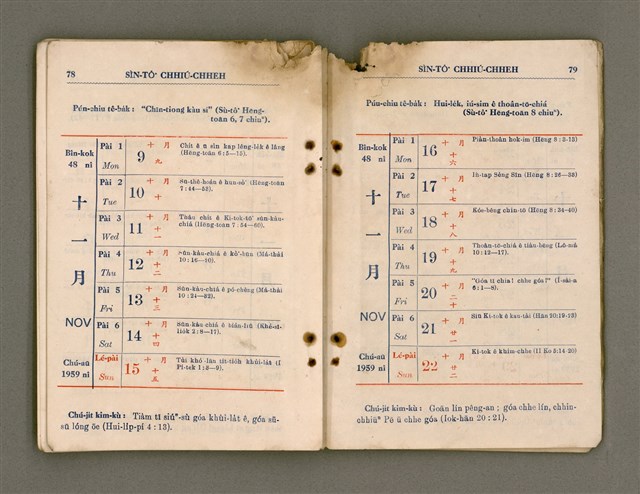 78 SÌN-TÔ͘ CHHIÚ-CHHEH
Pún-chiu tê-ba̍k: "Chīn-tiong kàu sí" (Sù-tô͘ Hēng-
toān 6, 7 chiuⁿ).
Bîn-kok
48 nî
十
一
月
NOV
Chú-āu
1959 nî
Pài 1
Mon
9
十 月
九
Chi̍t ê ū sìn kap lêng-le̍k ê lâng
(Hēng-toān 6:5—15).
Pài 2
Tue
10
十 月
十
(Hēng-toān 7
:44—53).
Pài 3
Wed
11
十 月
十
一
Thâu chi̍t ê Ki-tok-tô͘ sūn-kàu-
chiá (Hēng-toān 7:54—60).
Pài 4
Thu
12
十 月
十
二
Sūn-kàu-chiá ê (Má-thài
10:16—10).
Pài 5
Fri
13
十 月
十
三
Sūn-kàu-chiá ê pó-chèng (Má-thài
10:24—32).
Pài 6
Sat
14
十 月
十
四
Sūn-kàu-chiá ê biān-liū (Khé-sī-
lio̍k 2:8—17).
Lé-pài
Sun
15
十 月
十
五
Tùi khó-lān tit-tio̍h khùi-la̍t (I
Pí-tek 1:3—9).
Chú-ji̍t kim-kù: Tiàm tī siúⁿ-sù góa khùi-la̍t ê, góa sū-
sū lóng ōe (Hui-li̍p-pí 4:13).
SÌN-TÔ͘ CHHIÚ-CHHEH 79
Pún-chiu tê-ba̍k: Hui-le̍k, iú-sim ê thoân-tō-chiá
(Sù-tô͘ Hēng-toān 8 chiuⁿ).
Bîn-kok
48 nî
十
一
月
NOV
Chú-āu
1959 nî
Pài 1
Mon
16
十 月
十
六
Piàn-thoân hok-im (Hēng 8:3-13)
Pài 2
Tue
17
十 月
十
七
Ia̍h-tap Sèng Sîn (Hēng 8:26—33)
Pài 3
Wed
18
十 月
十
八
Kóe-bêng chin-tō (Hēng 8:34-40)
Pài 4
Thu
19
十 月
十
九
Thoân-tō-chiá ê tiàu-bēng (Lô-má
10:12—17).
Pài 5
Fri
20
十 月
二
十
"Góa tī chia! chhe góa!" (Í-sài-a
6:1—8).
Pài 6
Sat
21
十 月
廿
一
Siū Ki-tok ê kau-tài (Hān 20:19-23)
Lé-pài
Sun
22
十 月
廿
二
Ki-tok ê khim-chhe (II Ko 5:14-20)
Chú-ji̍t kim-kù: Goān lín pêng-an; góa chhe lín, chhin-
chhiūⁿ Pē ū chhe góa (Iok-hān 20:21).